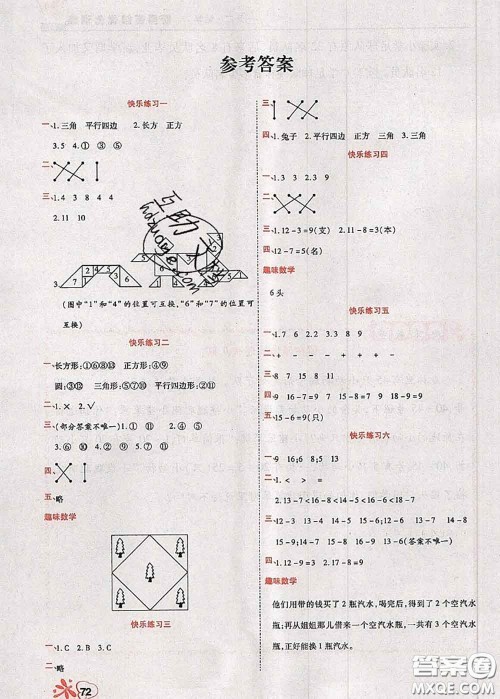 参考答案
快乐练习一
一、1.三角 平行四边 2.长方 正方
3.5 4.① ③ ⑤
二、
三、1.4 3 8 4 4
2.11 10
(图中“1”和“4”的位置可互换,“6”和“7”的位置可
互换)
快乐练习二
一、长方形:①⑥⑧⑬ 正方形:④⑨
圆:⑪⑫ 三角形:⑤⑦⑩ 平行四边形:②⑪
二、1.× 2.√
三、(部分答案不唯一)1.① 2.⑤
3.⑥ ⑩ 4.② ⑨ ⑫
四、
五、略
趣味数学
快乐练习三
一、1.C 2.B 3.C
二、略
72
三、
四、1.兔子 2.平行四边形 3.三角形
快乐练习四
一、1.4 7 4 9
二、
三、1.12-3=9(支) 2.11-8=3(本)
四、12-7=5(名)
趣味数学
6头
快乐练习五
一、1.7 6 2.2 3 3.8 9
二、+ - + - - +
三、8 7 15 8 9 11
四、9 8 9 6
五、15-6=9(只)
快乐练习六
一、9 16 9;8 5 13
二、1.< < > =
2.13-7<11-2<18-8<16<19-2<16+2
三、12-3 13-4 15-6 17-8 13-9 14-8
15-9;14-5 15-6 16-7(答案不唯一)
四、1.12-4=8 2.17-8=9
趣味数学
他们用带的钱买了2瓶汽水,喝完后,得到了2个空汽水
瓶;再从姐姐那儿借来一个空汽水瓶,一共有3个空汽水瓶,
正好能换1瓶汽水。
互助文
hdzuoye.com
答案圈
MXQE.COM